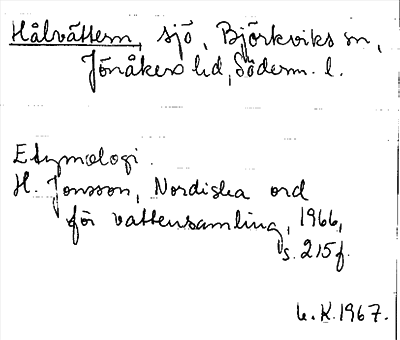 Hålvättern, sjö, Björkviks sn,
Jönåkers hd, Söderm. l.
Etymologi.
H. Jonsson, Nordiska ord
för vattensamling, 1966,
s. 215f.
K.1967.